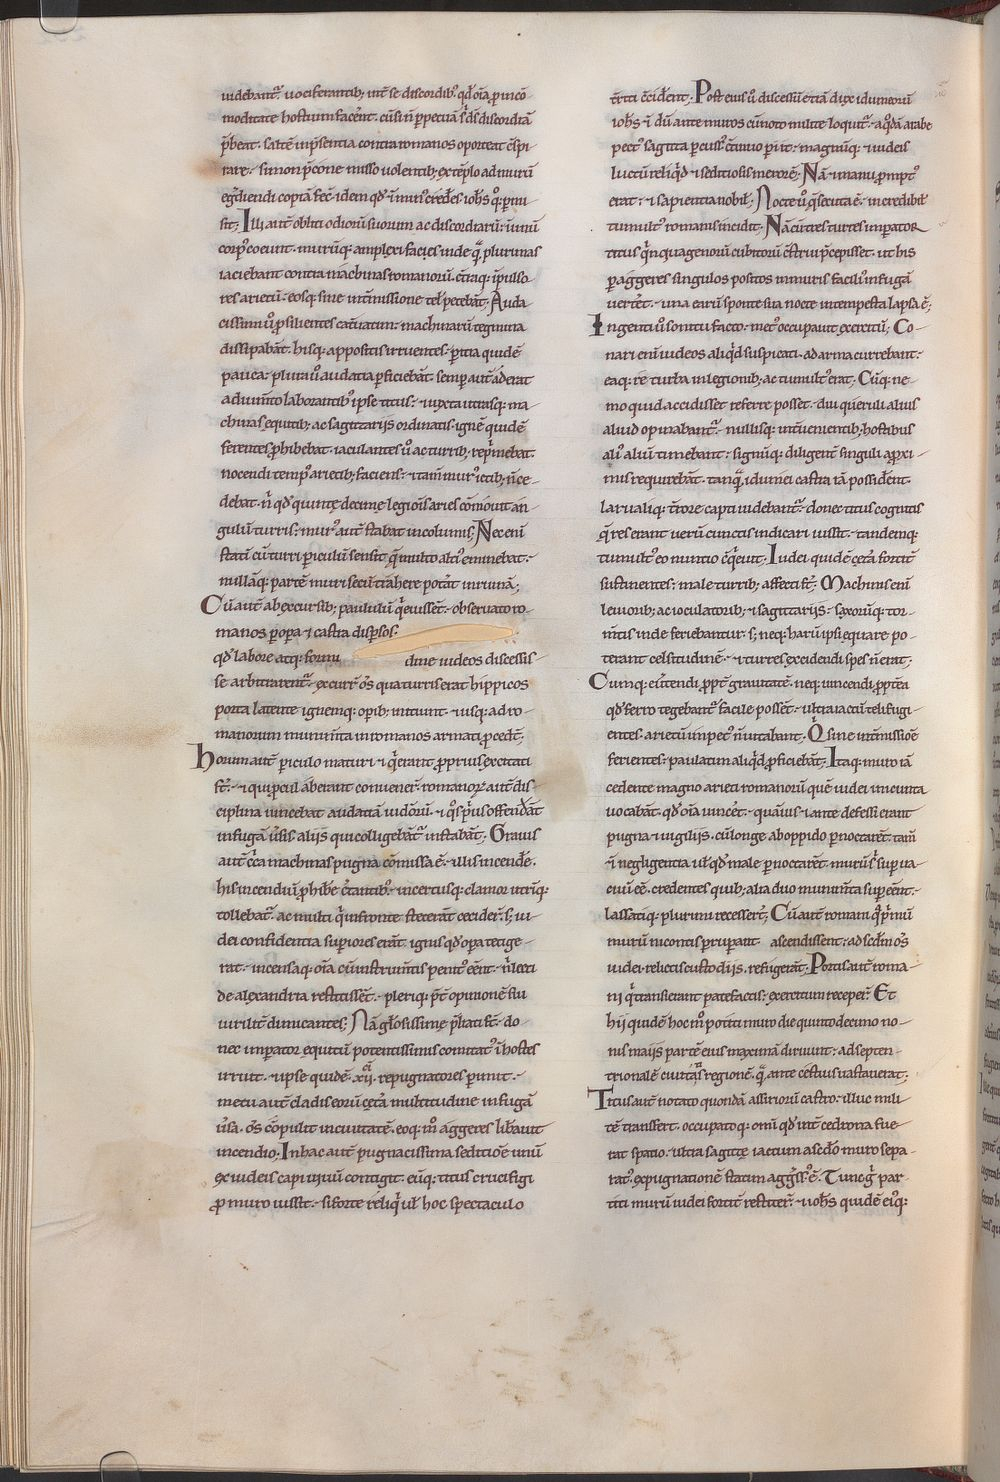 uidebant᷑ uociferantib; int̄ se discordib᷒ qđ oīa ꝓ incō
moditate hostium facer̄ent. cūsiñ ꝑpetuā s͛ ds discordiā
p̄beat. saltē inp̄sentia contra romanos oporteat c̄spi
rare. simon p̄cone misso uolentib; ex tēplo ad murū
eg͛diendi copiā fec̄. idem qđ ⁊ inuit᷒ credēs ioħs q᷒ꝙ ꝑmi
sit; Illi aut̄ obliti odiorū suorum ac discordiarū. in unū
corp᷒ coeunt. murūq; amplexi faces inde q̄ plurimas
iaciebant contra machinas romanorū. ēaq; īpulso
res arietū. eosq; sine int̄missione tel᷒ petebāt; Auda
cissimi ů ꝓsilientes cat̄uatim. machinarū tegmina
dissipabāt. hisq; appositis irruentes. ꝑitia quidē
pauca. plura ů audatia ꝑficiebāt. semꝑ aut̄ aderat
adiumto laborantib᷒ ipse titus. ⁊ iuxta utrasq; ma
chinas equitib; ac sagittariis ordinatis. ignē quidē
ferentes ꝓhibebat. iaculantes ů ac turrib; rep̄mebat.
nocendi temp᷒ arietib; faciens. ⁊ tam̄ mur᷒ ictib; n̄ ce
debat. n̄ qđ quinte decime legiōis aries cōmouit an
gulū turris. mur᷒ aut̄ stabat incolumis; Nec enī
statī cū turri ꝑiculū sensit q̄ multo alci᷒ eminebat.
nullāq; partē muri secū trahere potāt in ruinā;
Cū aut̄ ab excursib; paululū q͛euissent. obseruato ro
manos ꝑ oꝑa ⁊ castra disꝑsos.
qđ labore atq; formi dine iudeos discessis
se arbitrarent᷑. excurr̄t o᷒s qua turris erat hippicos
porta latente ignemq; oꝑib; inicıunt. ⁊ usq; ad ro
manorum munim̄ta in romanos armati ꝓcedt̄;
Horum aut̄ ꝑiculo maturi ⁊ q͛ erant ꝓprius excitati
st̄. ⁊ qui ꝓcul aberant conuener̄. romanoꝝ aut̄ dis
ciplina uincebat audatiā iudōrū. ⁊ q᷒s p͛us offendāt
in fugā ůsis aliis qui colligebāt᷑ instabāt; Grauis
aut̄ c͛ca machinas pugna cōmissa ē. illis incendē.
his incendiū ꝓhibē c̄tantib᷒. incertusq; clamor utrūq;
tollebat᷑. ac multi q͛ in fronte steterāt cecider̄. s; iu
dei confidentia suꝑiores erāt. ignis qđ oꝑa tetige
rat. incensaq; oīa cū instrum̄tis penit᷒ eēnt. n͛ lecti
de alexandria restitissēt. pleriq; p̄t̄ opinionē sui
uirilit̄ dimicantes; Nā gl̄osissime p̄lati st̄. do
nec imꝑator equitū potentissimis comitat᷒ ī hostes
irruit. ⁊ ipse quidē .xii. repugnatores ꝑimit.
metu aut̄ cladis eorū cet̄a multitudine in fugā
ůsa. o᷒s cōpulit in ciuitatē. eoq; m᷒ aggeres lib̄auit
incendio; In hac aut̄ pugna acissima seditiōe unū
ex iudeis capi uiuū contigit. eūq; titus crucifigi
ꝓ muro iussit. si forte reliq͛ ul̄ hoc spectaculo
t̄rti c̄ciđent; Post eius ů discessū etiā dux idumeorū
ioħs ⁊ dū ante muros cū noto milite loquit᷑. a q᷒dā arabe
pect᷒ sagitta ꝑcuss᷒ ctinuo ꝑiit. magnūq; ⁊ iudeis
luctū reliq͛d ⁊ seditiosis merorē; Nā ⁊ manu ꝓmpt᷒
erat. ⁊ sapientia nobil᷒; Nocte ů q̄ secuta ē. incredibil᷒
tumult᷒ romanis incidit. Nā cū tres turres imꝑator
titus q͛nquagenorū cubitorū c̄strui p̄cepisset. ut his
ꝑ aggeres singulos positos in muris facili᷒ in fugā
uertet. una earū sponte sua nocte intempesta lapsa ē;
Ingenti ů sonitu facto. met᷒ occupauit exercitū; Co
nari enī iudeos aliq͛d suspicati. ad arma currebant.
eaq; re turba in legionib; ac tumult᷒ erat; Cūq; ne
mo quid accidisset referre posset. diu queruli aliis
aliud opinabant᷑. nullisq; int̄uenientib; hostibus
ali᷒ aliū timebant. signūq; diligent̄ singuli a ꝓxi
mis requirebāt. tanq̄ idumei castra iā possiđent.
larualiq; t̄rore capti uidebant᷑. donec titus cognitis
q̄ res erant uerū cunctis indicari iussit. tandemq;
tumult᷒ eo nuntio c̄q͛euit; Iudei quidē cet̄a fortit̄
sustinentes. male turrib; affecti st̄; Machinis enī
leuiorib; ac ioculatorib; ⁊ sagittariis. saxorūq; tor
m̄tis inde feriebantur. s; neq; harū ipsi equare po
terant celsitudinē. ⁊ turres excidendi spes n̄ erat;
Cumq; eůtendi ꝓpt̄ grauitatē. neq; incendi ꝓpt̄ea
qđ ferro tegebant᷑ facile possent. ultra iactū teli fugi
entes. arietū impet᷒ n̄ uitabant; Q͛ sine int̄missiōe
ferientes. paulatim aliq͛d ꝓficiebāt; Itaq; muro iā
cedente magno arieti romanorū quē iudei iniconta
uocabant. qđ oīa uincet̄. quāuis ⁊ iante defessi erant
pugna ⁊ uigiliis. cū longe ab oppido ꝑnoctarēt. tam̄
⁊ negligentia ul̄ qđ male ꝑnoctarēt. murū s͛ suꝑua
cuū eē. credentes quib; alia duo munim̄ta suꝑeēnt.
lassatiq; plurimi recessert̄; Cū aut̄ romani q͛ p͛mū
murū nicontis ꝑrupant ascendissent. ad scđm o᷒s
iudei. relictis custodiis. refugerāt; Portis aut̄ roma
ni q͛ transierant patefactis. exercitum receper̄; Et
hii quidē hoc m᷒ potiti muro die quinto decimo no
nis maiis partē eius maximā diruunt. ad septen
trionalē ciuitatis regionē. q̄ ante cestius uastauerat;
Titus aut̄ notato quondā assiriorū castro. illuc mili
tē transfert. occupatoq; omī qđ int̄ cedrona fue
rat spatio. ultra sagitte iactum a scđo muro sepa
rat᷒. expugnationē statim aggͬss᷒ ē. Tunc g͛ par
titi murū iudei fortit̄ restiter̄. ⁊ ioħs quidē ei᷒q;